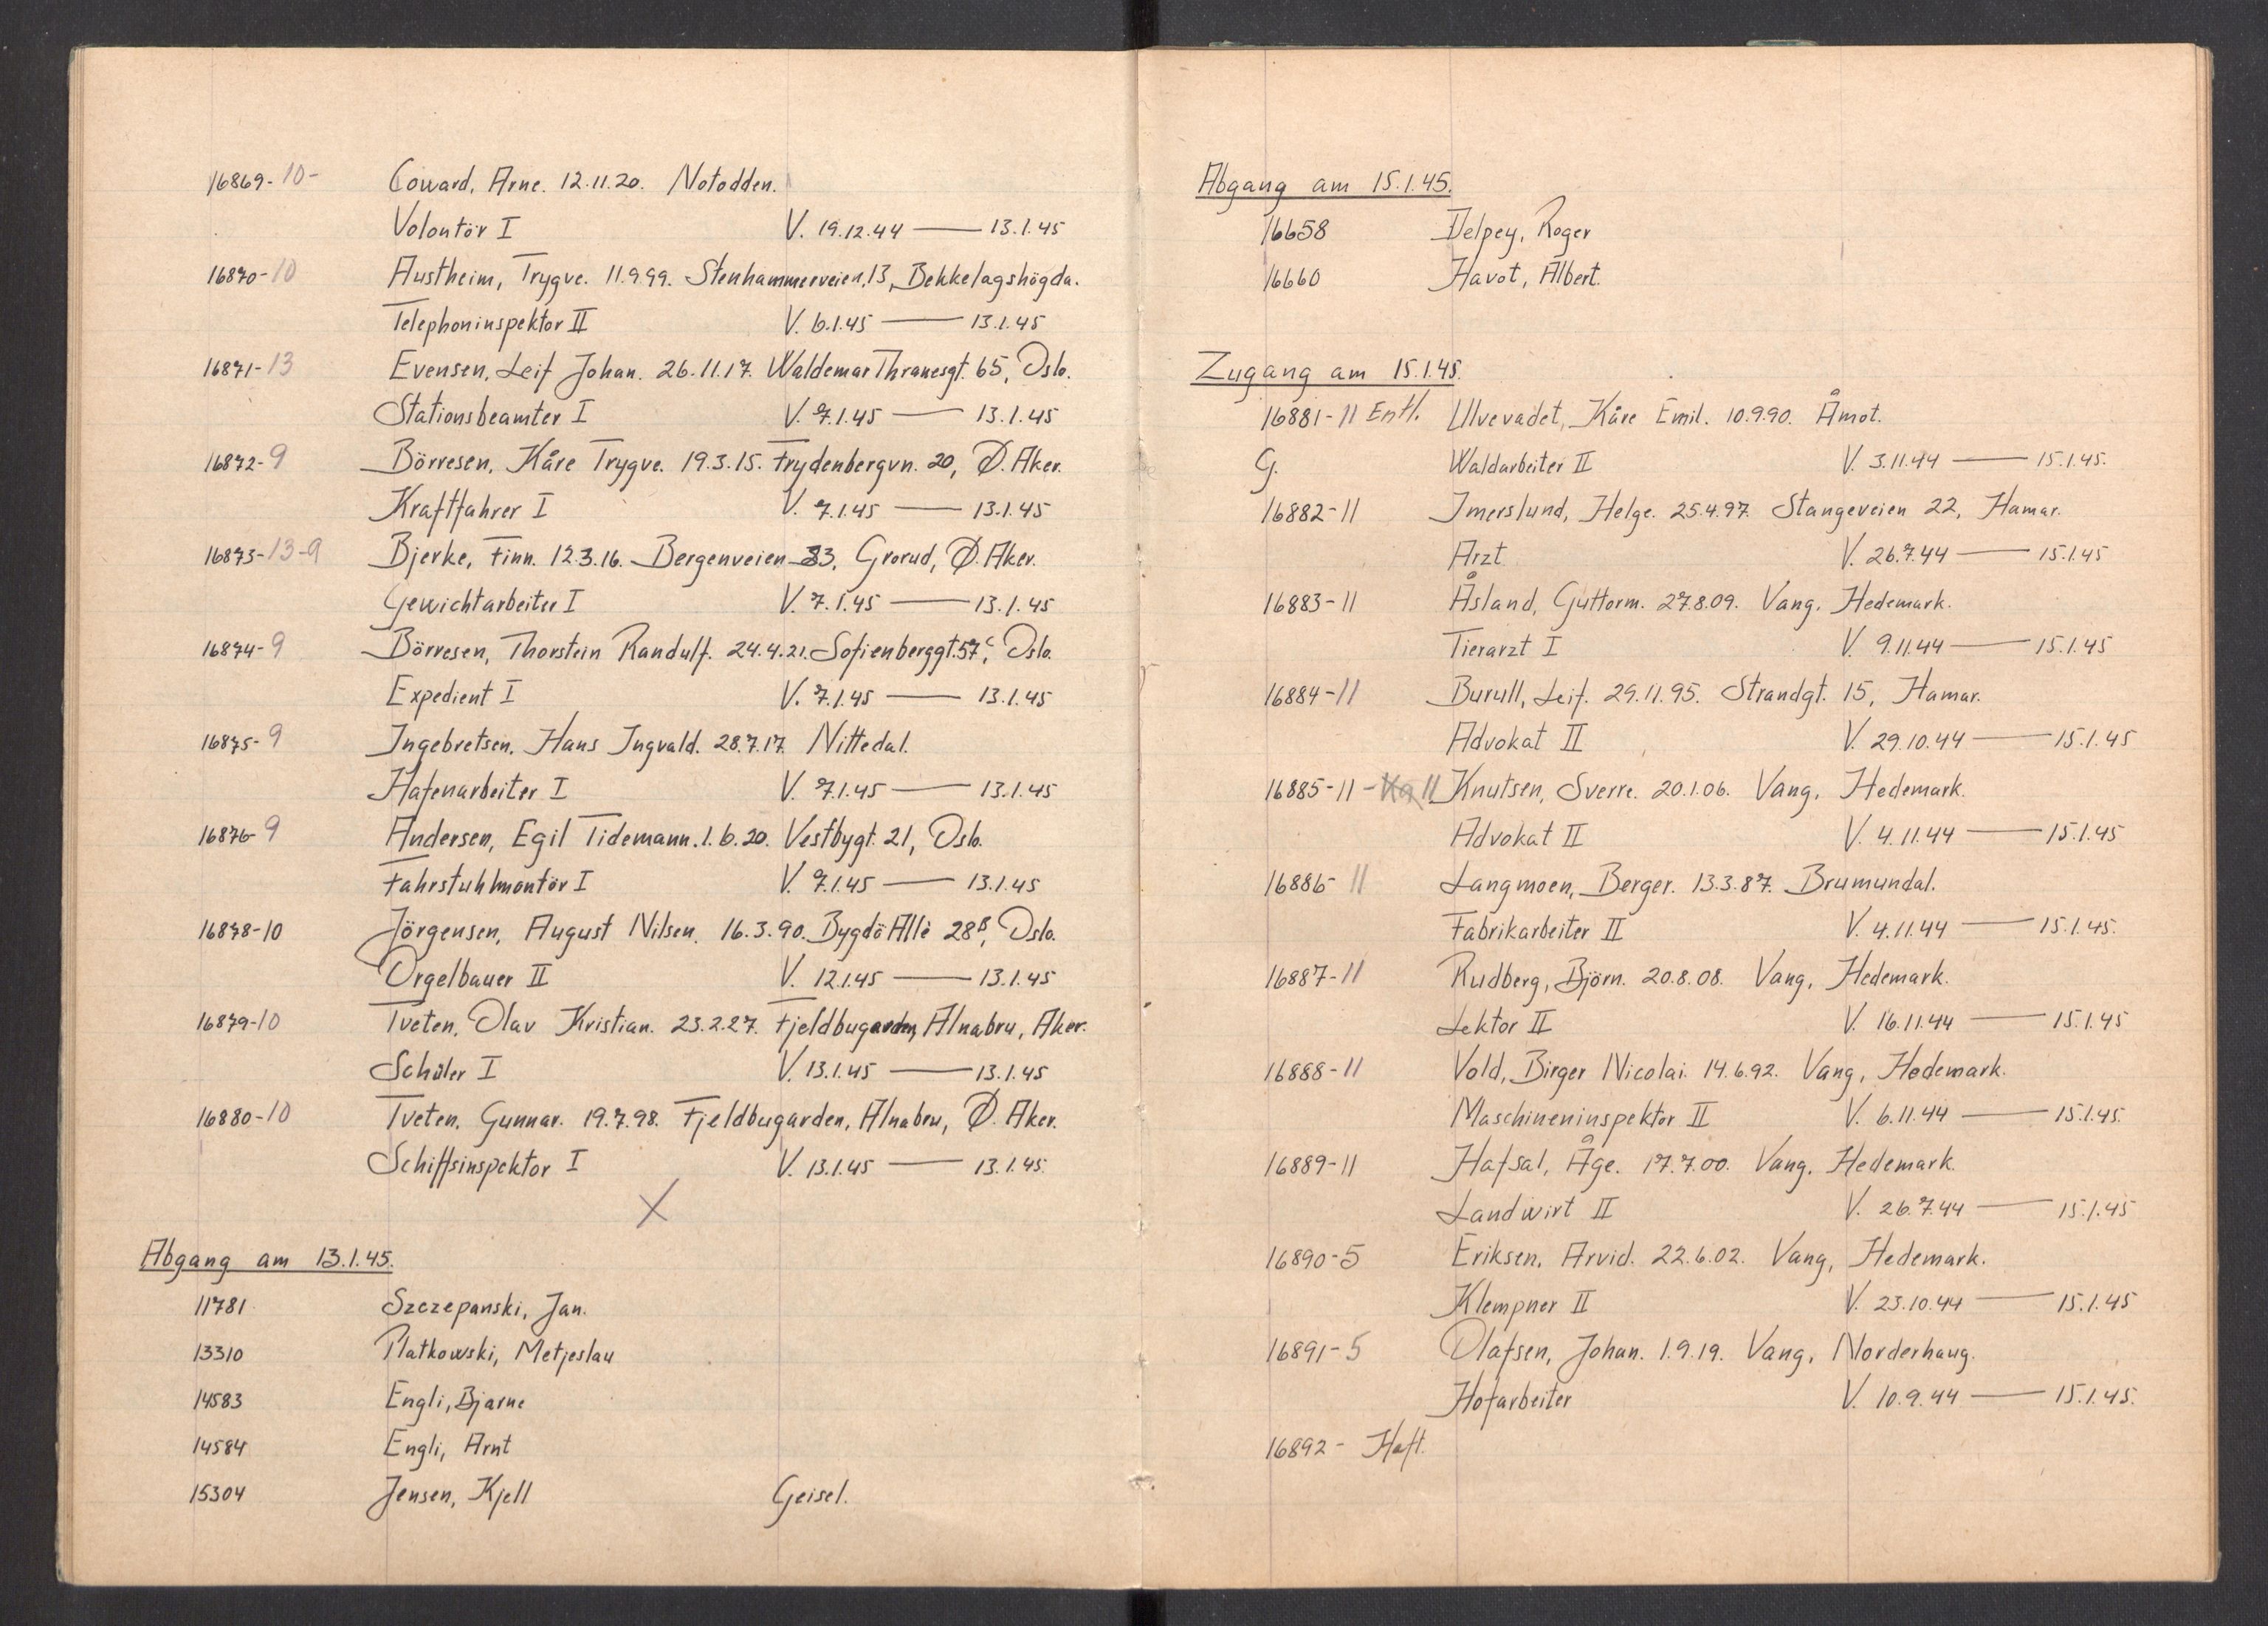 16869-10- Coward, Arne. 12.11.20. Notodden.
Volontör I V. 19.12.44 — 13.1.45
16870-10 Austheim, Trygve. 11.9.99. Stenhammerveien,13, Bekkelagshögda.
Telephoninspektor II V. 6.1.45 — 13.1.45
16871-13 Evensen, Leif Johan. 26.11.17. Waldemar Thranesgt. 65, Oslo.
Stationsbeamter I V. 7.1.45 — 13.1.45
16872-9 Börresen, Kåre Trygve. 19.3.15. Frydenbergvn. 20, Ø. Aker.
Kraftfahrer I V. 7.1.45 — 13.1.45
16873-13-9 Bjerke, Finn. 12.3.16. Bergenveien 33, Grorud, Ø. Aker.
Gewichtarbeiter I V. 7.1.45 — 13.1.45
16874-9 Börresen, Thorstein Randulf. 24.4.21. Sofienberggt. 57c, Oslo.
Expedient I V. 7.1.45 — 13.1.45
16875-9 Ingebretsen, Hans Ingvald. 28.7.17. Nittedal.
Hafenarbeiter I V. 7.1.45 — 13.1.45
16876-9 Andersen, Egil Tidemann. 1.6.20. Vestbygt. 21, Oslo.
Fahrstuhlmontör I V. 7.1.45 — 13.1.45
16878-10 Jörgensen, August Nilsen. 16.3.90. Bygdö Allè 28B, Oslo.
Orgelbauer II V. 12.1.45 — 13.1.45
16879-10 Tveten, Olav Kristian. 23.2.27. Fjeldbugarden, Alnabru, Aker.
Schüler I V. 13.1.45 — 13.1.45
16880-10 Tveten, Gunnar. 19.7.98. Fjeldbugarden, Alnabru, Ø. Aker.
Schiffsinspektor I V. 13.1.45 — 13.1.45.
X
Abgang am 13.1.45.
11781 Szczepanski, Jan.
13310 Platkowski, Metjeslau
14583 Engli, Bjarne
14584 Engli, Arnt
15304 Jensen, Kjell Geisel.
Abgang am 15.1.45.
16658 Delpey, Roger
16660 Havot, Albert.
Zugang am 15.1.45.
16881-11 Entl. Ulvevadet, Kåre Emil. 10.9.90. Åmot.
G. Waldarbeiter II V. 3.11.44 — 15.1.45.
16882-11 Imerslund, Helge. 25.4.97. Stangeveien 22, Hamar.
Arzt V. 26.7.44 — 15.1.45
16883-11 Åsland, Guttorm. 27.8.09. Vang, Hedemark.
Tierarzt I V. 9.11.44 — 15.1.45
16884-11 Burull, Leif. 29.11.95. Strandgt. 15, Hamar.
Advokat II V. 29.10.44 — 15.1.45
16885-11- 11 Knutsen, Sverre. 20.1.06. Vang, Hedemark.
Advokat II V. 4.11.44 — 15.1.45
16886-11 Langmoen, Berger. 13.3.87. Brumundal.
Fabrikarbeiter II V. 4.11.44 — 15.1.45.
16887-11 Rudberg, Björn. 20.8.08. Vang, Hedemark.
Lektor II V. 16.11.44 — 15.1.45
16888-11 Vold, Birger Nicolai. 14.6.92. Vang, Hedemark.
Maschineninspektor II V. 6.11.44 — 15.1.45.
16889-11 Hafsal, Åge. 17.7.00. Vang, Hedemark.
Landwirt II V. 26.7.44 — 15.1.45
16890-5 Eriksen, Arvid. 22.6.02. Vang, Hedemark.
Klempner II V. 23.10.44 — 15.1.45
16891-5 Olafsen, Johan. 1.9.19. Vang, Norderhaug.
Hofarbeiter V. 10.9.44 — 15.1.45.
16892- Haft.